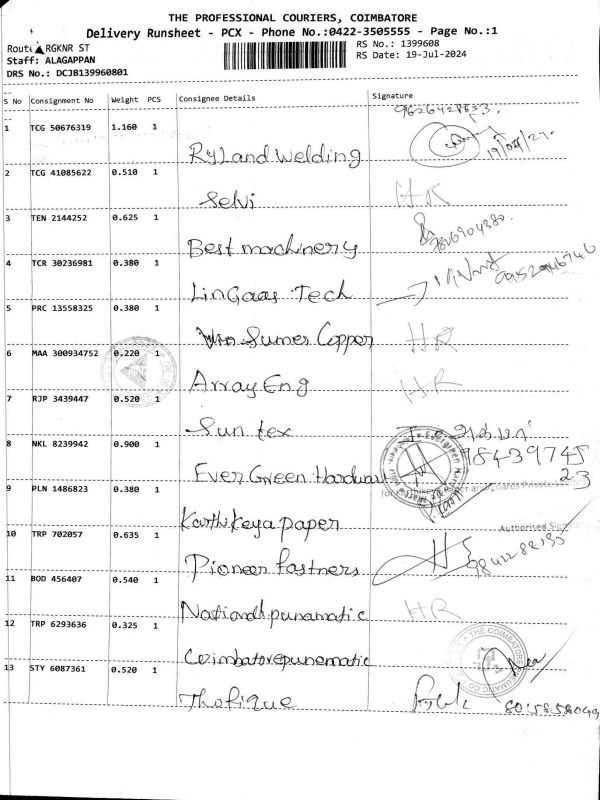 THE PROFESSIONAL COURIERS, COIMBATORE
Delivery Runsheet - PCX - Phone No.:0422-3505555 - Page No.:1
Route RGKNR ST
RS No.: 1399608
Staff: ALAGAPPAN
RS Date: 19-Jul-2024
DRS No.: DCJB139960801
S No Consignment No Weight PCS Consignee Details Signature
1 TCG 50676319 1.160 1
RyLand Welding
2 TCG 41085622 0.510 1
Selvi HR
3 TEN 2144252 0.625 1
Best machinery
4 TCR 30236981 0.380 1
LinGaas Tech
5 PRC 13558325 0.380 1
Sumer Copper HR
6 MAA 300934752 0.220 1
Array Eng HR
7 RJP 3439447 0.520 1
Sun tex
8 NKL 8239942 0.900 1
98439745
23
Ever Green Hardware
9 PLN 1486823 0.380 1
Karthikeya paper
Authorised
10 TRP 702057 0.635 1
Pioneer fastners
11 BOD 456407 0.540 1
HR
12 TRP 6293636 0.325 1
THE COIMBATORE
Coimbatorepunematic
13 STY 6087361 0.520 1
Thofique